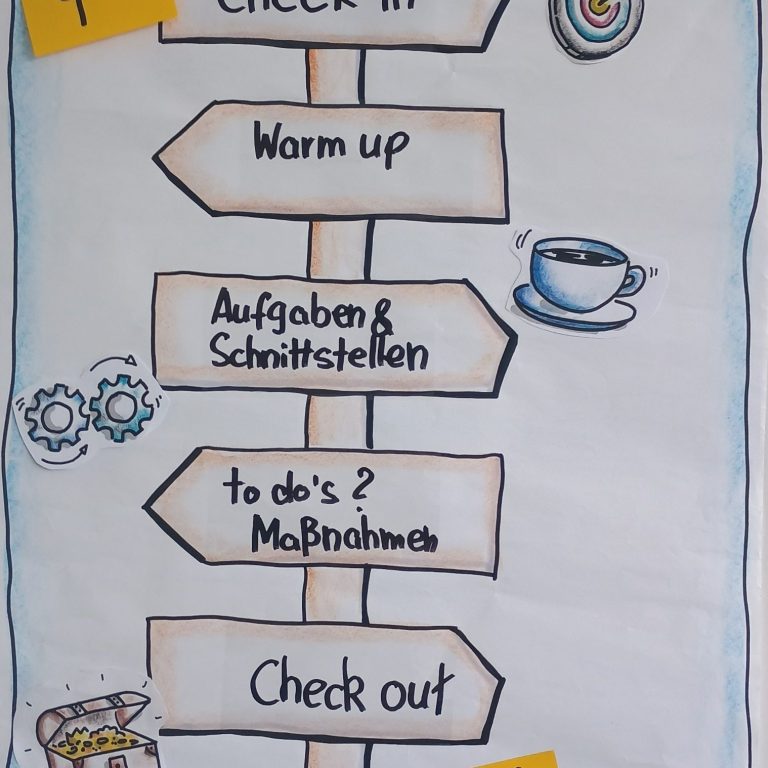 Check in
Warm up
Aufgaben &
Schnittstellen
to do's ?
Maßnahmen
Check out